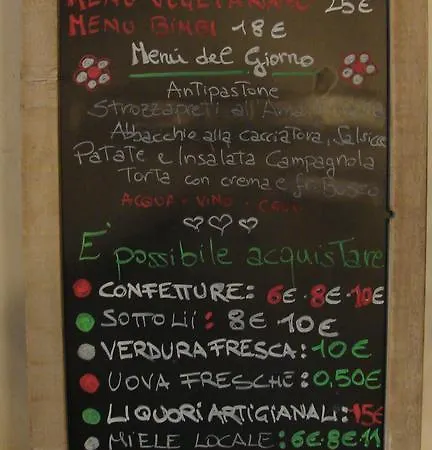 MENU VEGETARIANO 25€
MENU BIMBI 18€
Menú del Giorno
Antipastone
Strozzapreti all'Amatriciana
Abbacchio alla cacciatora, Salsicce
Patate e Insalata Campagnola
Torta con crema e fr. Bosco
ACQUA - VINO - CAFFÈ
E' possibile acquistare
CONFETTURE: 6€ - 8€ - 10€
SOTTOLII: 8€ 10€
VERDURA FRESCA: 10€
UOVA FRESCHE: 0,50€
LIQUORI ARTIGIANALI: 15€
MIELE LOCALE: 6€ - 8€ - 11